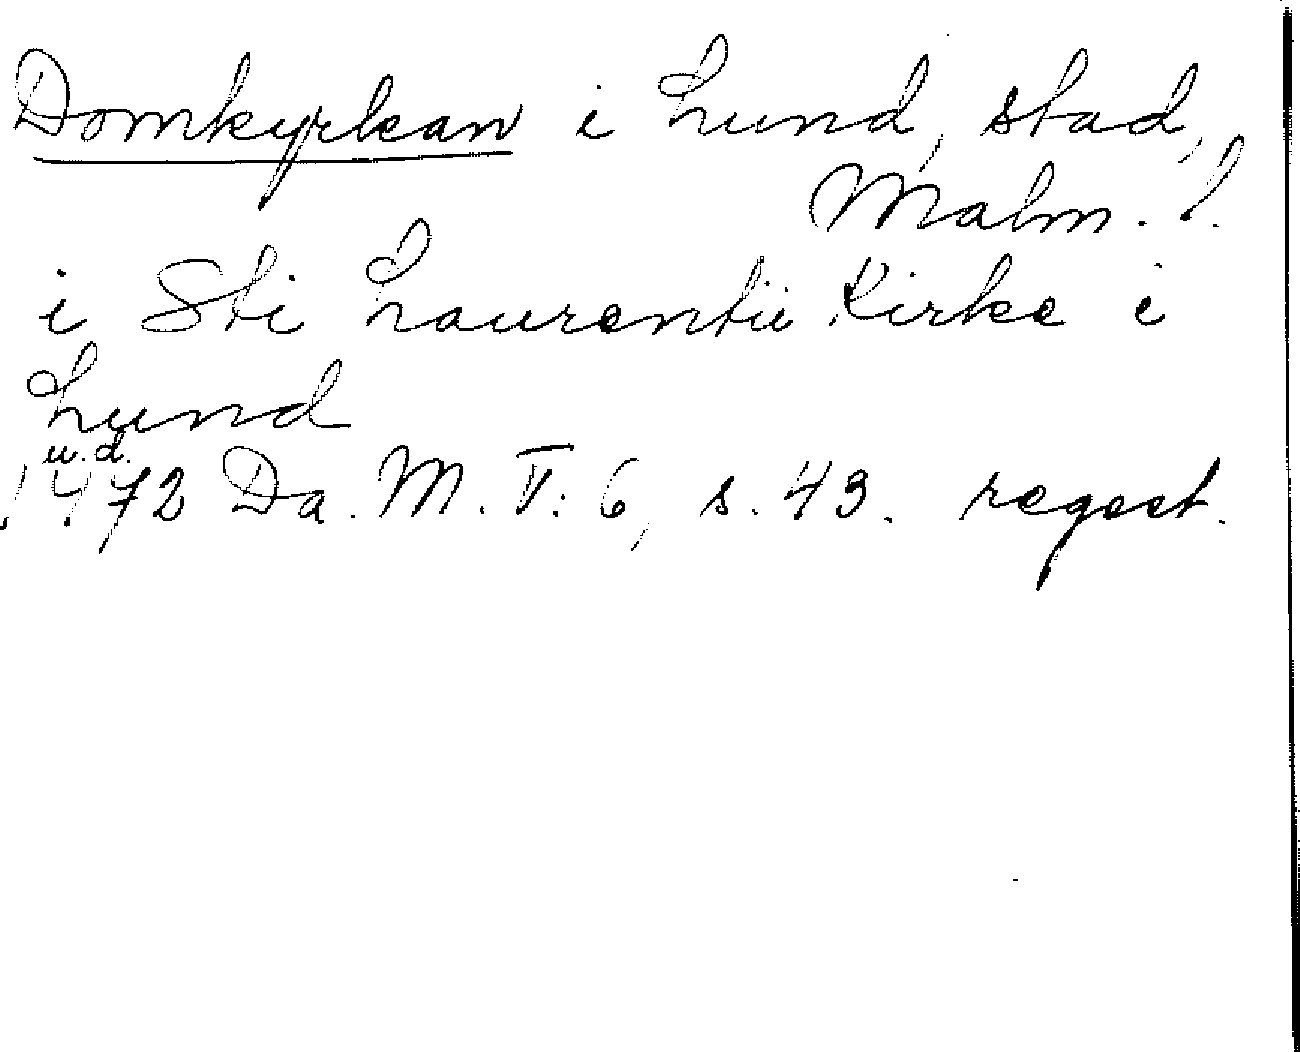 Domkyrkan i Lund, stad,
Malm. l.
i Sti Laurentii Kirke i
Lund
u.d.
1472 Da. M. V: 6, s. 43. regest.